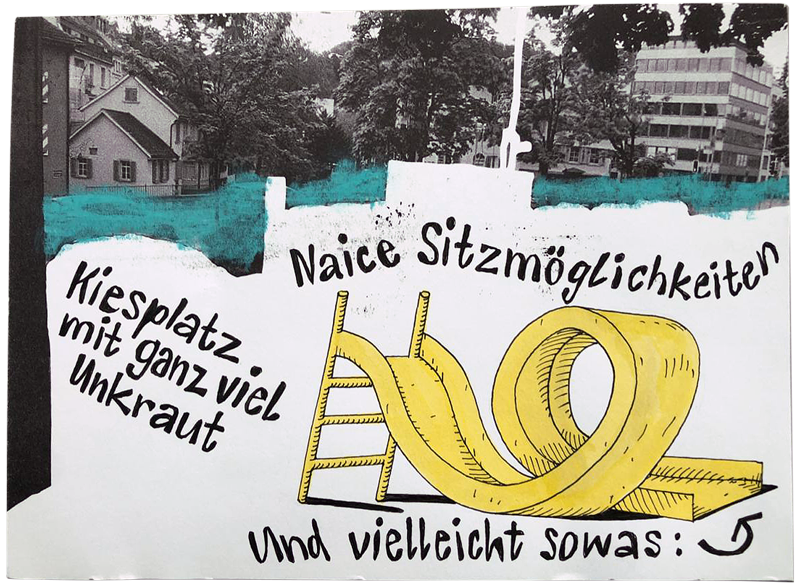 Naice Sitzmöglichkeiten
Kiesplatz
mit ganz viel
Unkraut
Und vielleicht sowas: